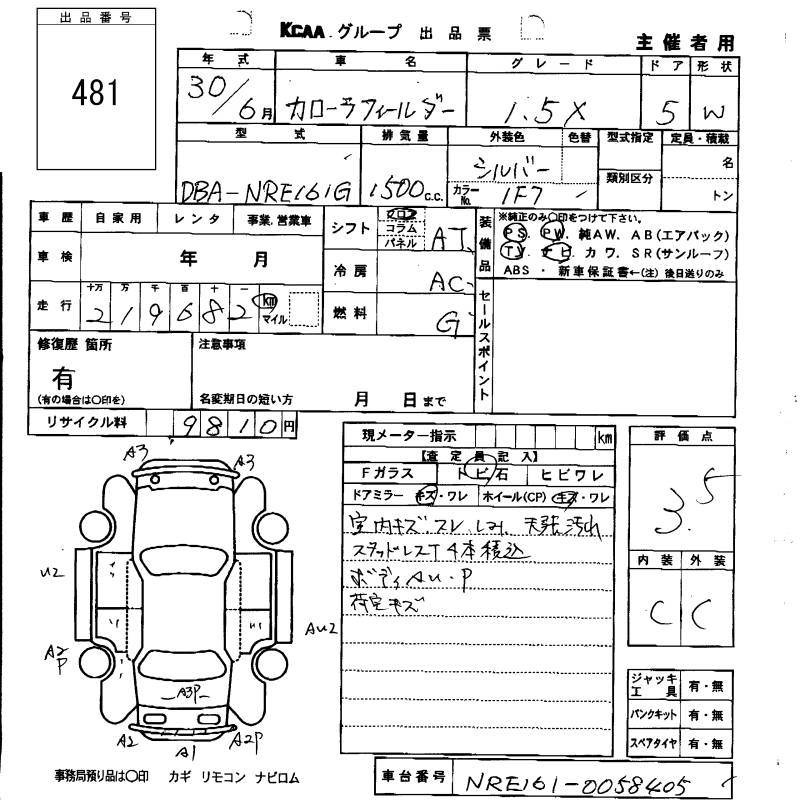 出品番号
481
KCAA グループ 出品票
主催者用
年式 車名 グレード ドア 形状
30/6月 カローラフィールダー 1.5X 5 W
型式 排気量 外装色 色替 型式指定 定員・積載
DBA-NRE161G 1500c.c. シルバー 類別区分 名
カラーNo. 1F7 トン
車歴 自家用 レンタ 事業.営業車
シフト フロア コラム パネル AT
装備品 ※純正のみ〇印をつけて下さい。
PS. PW. 純AW. AB(エアバック)
TV. ナビ カワ. SR(サンルーフ)
ABS ・ 新車保証書←(注) 後日送りのみ
車検 年 月
冷房 AC
走行 十万 万 千 百 十 一
219682 km マイル
燃料 G
セールスポイント
修復歴 箇所
有
(有の場合は〇印を)
注意事項
名変期日の短い方 月 日まで
リサイクル料 9810円
現メーター指示 km
【査定員記入】
Fガラス トビ石 ヒビワレ
ドアミラー キズ・ワレ ホイール(CP) キズ・ワレ
室内キズ.スレ.シミ. 天張汚れ
スタッドレスT4本積込
ボディAU・P
荷室キズ
評価点
3.5
内装 外装
C C
A3 A3
U2
AU2
A2
P
A3P
A2 A1 A2P
ジャッキ工具 有・無
パンクキット 有・無
スペアタイヤ 有・無
事務局預り品は〇印 カギ リモコン ナビロム
車台番号 NRE161-0058405